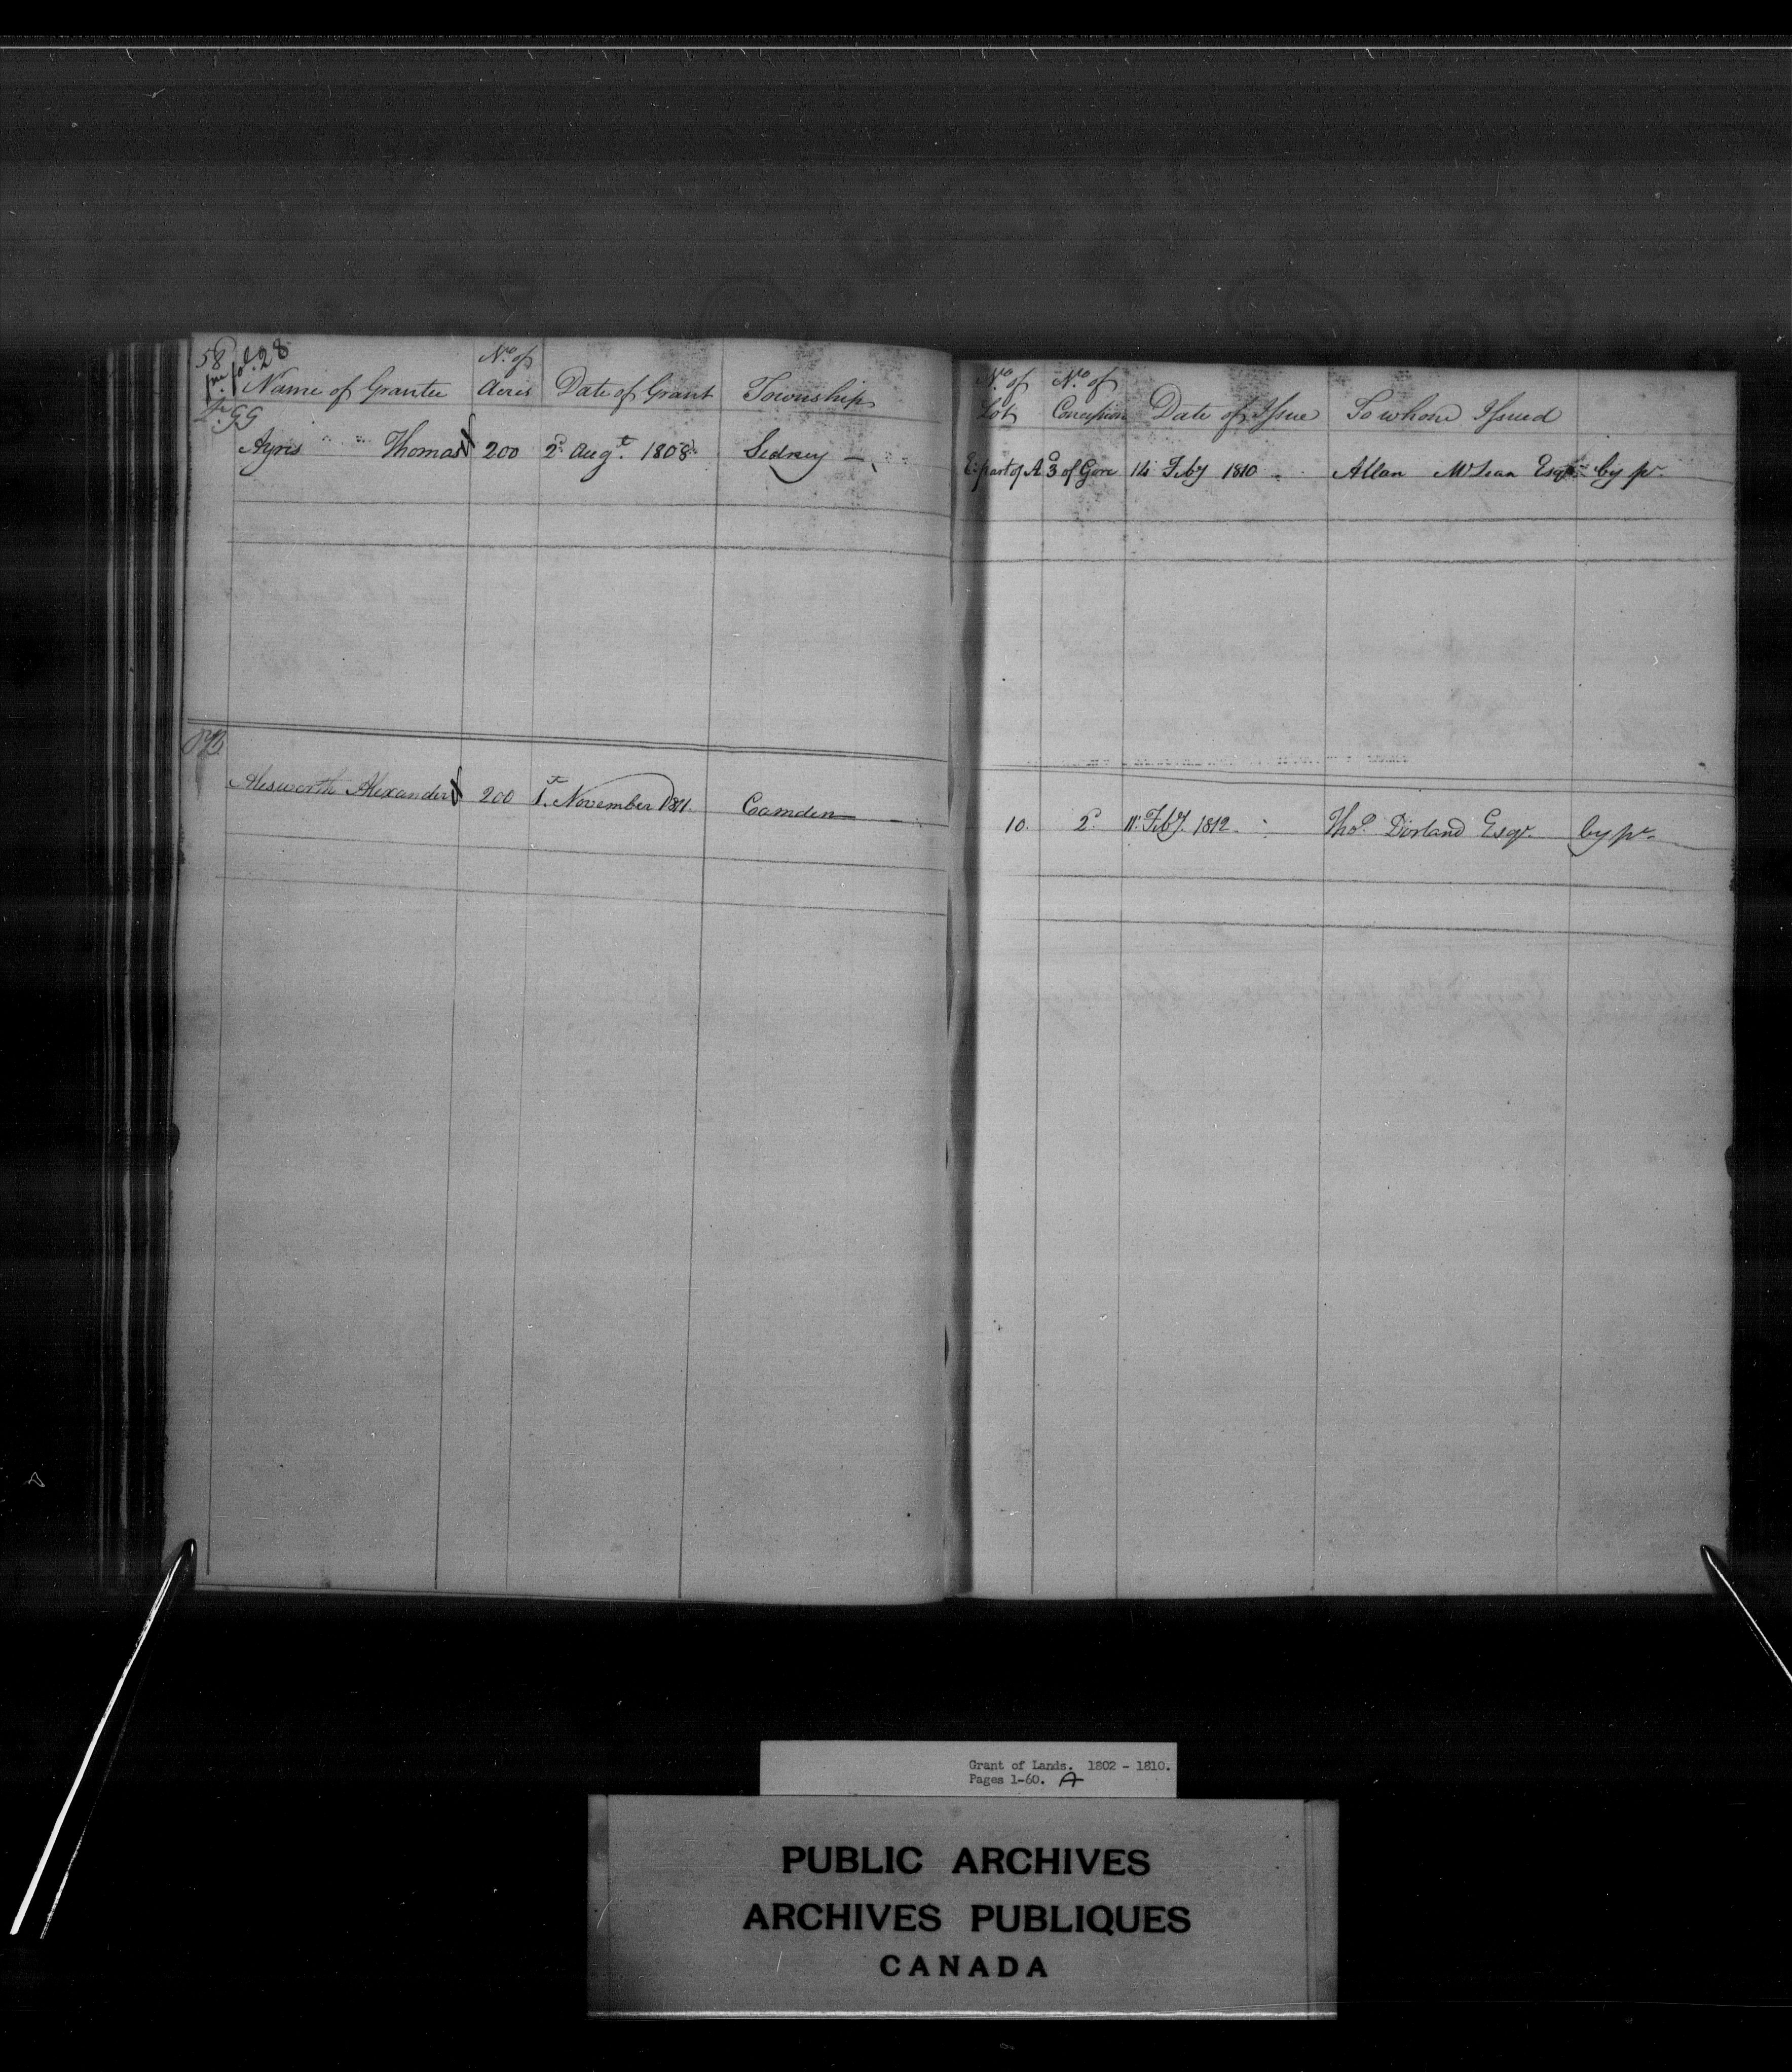 58 fol. 28
Name of Grantee No. of Acres Date of Grant Township No. of Lot No. of Concession Date of Issue To whom Issued
GG
Ayres " " Thomas 200 2d Augt. 1808 Sidney E: part of A 3 of Gore 14 Feby 1810 Allan McLean Esqr. by pr.
Alesworth Alexander 200 1t. November 1811. Camden 10. 2d. 11: Feby. 1812 Thos. Dorland Esqr. by pr.
Grant of Lands. 1802 - 1810.
Pages 1-60. A
PUBLIC ARCHIVES
ARCHIVES PUBLIQUES
CANADA